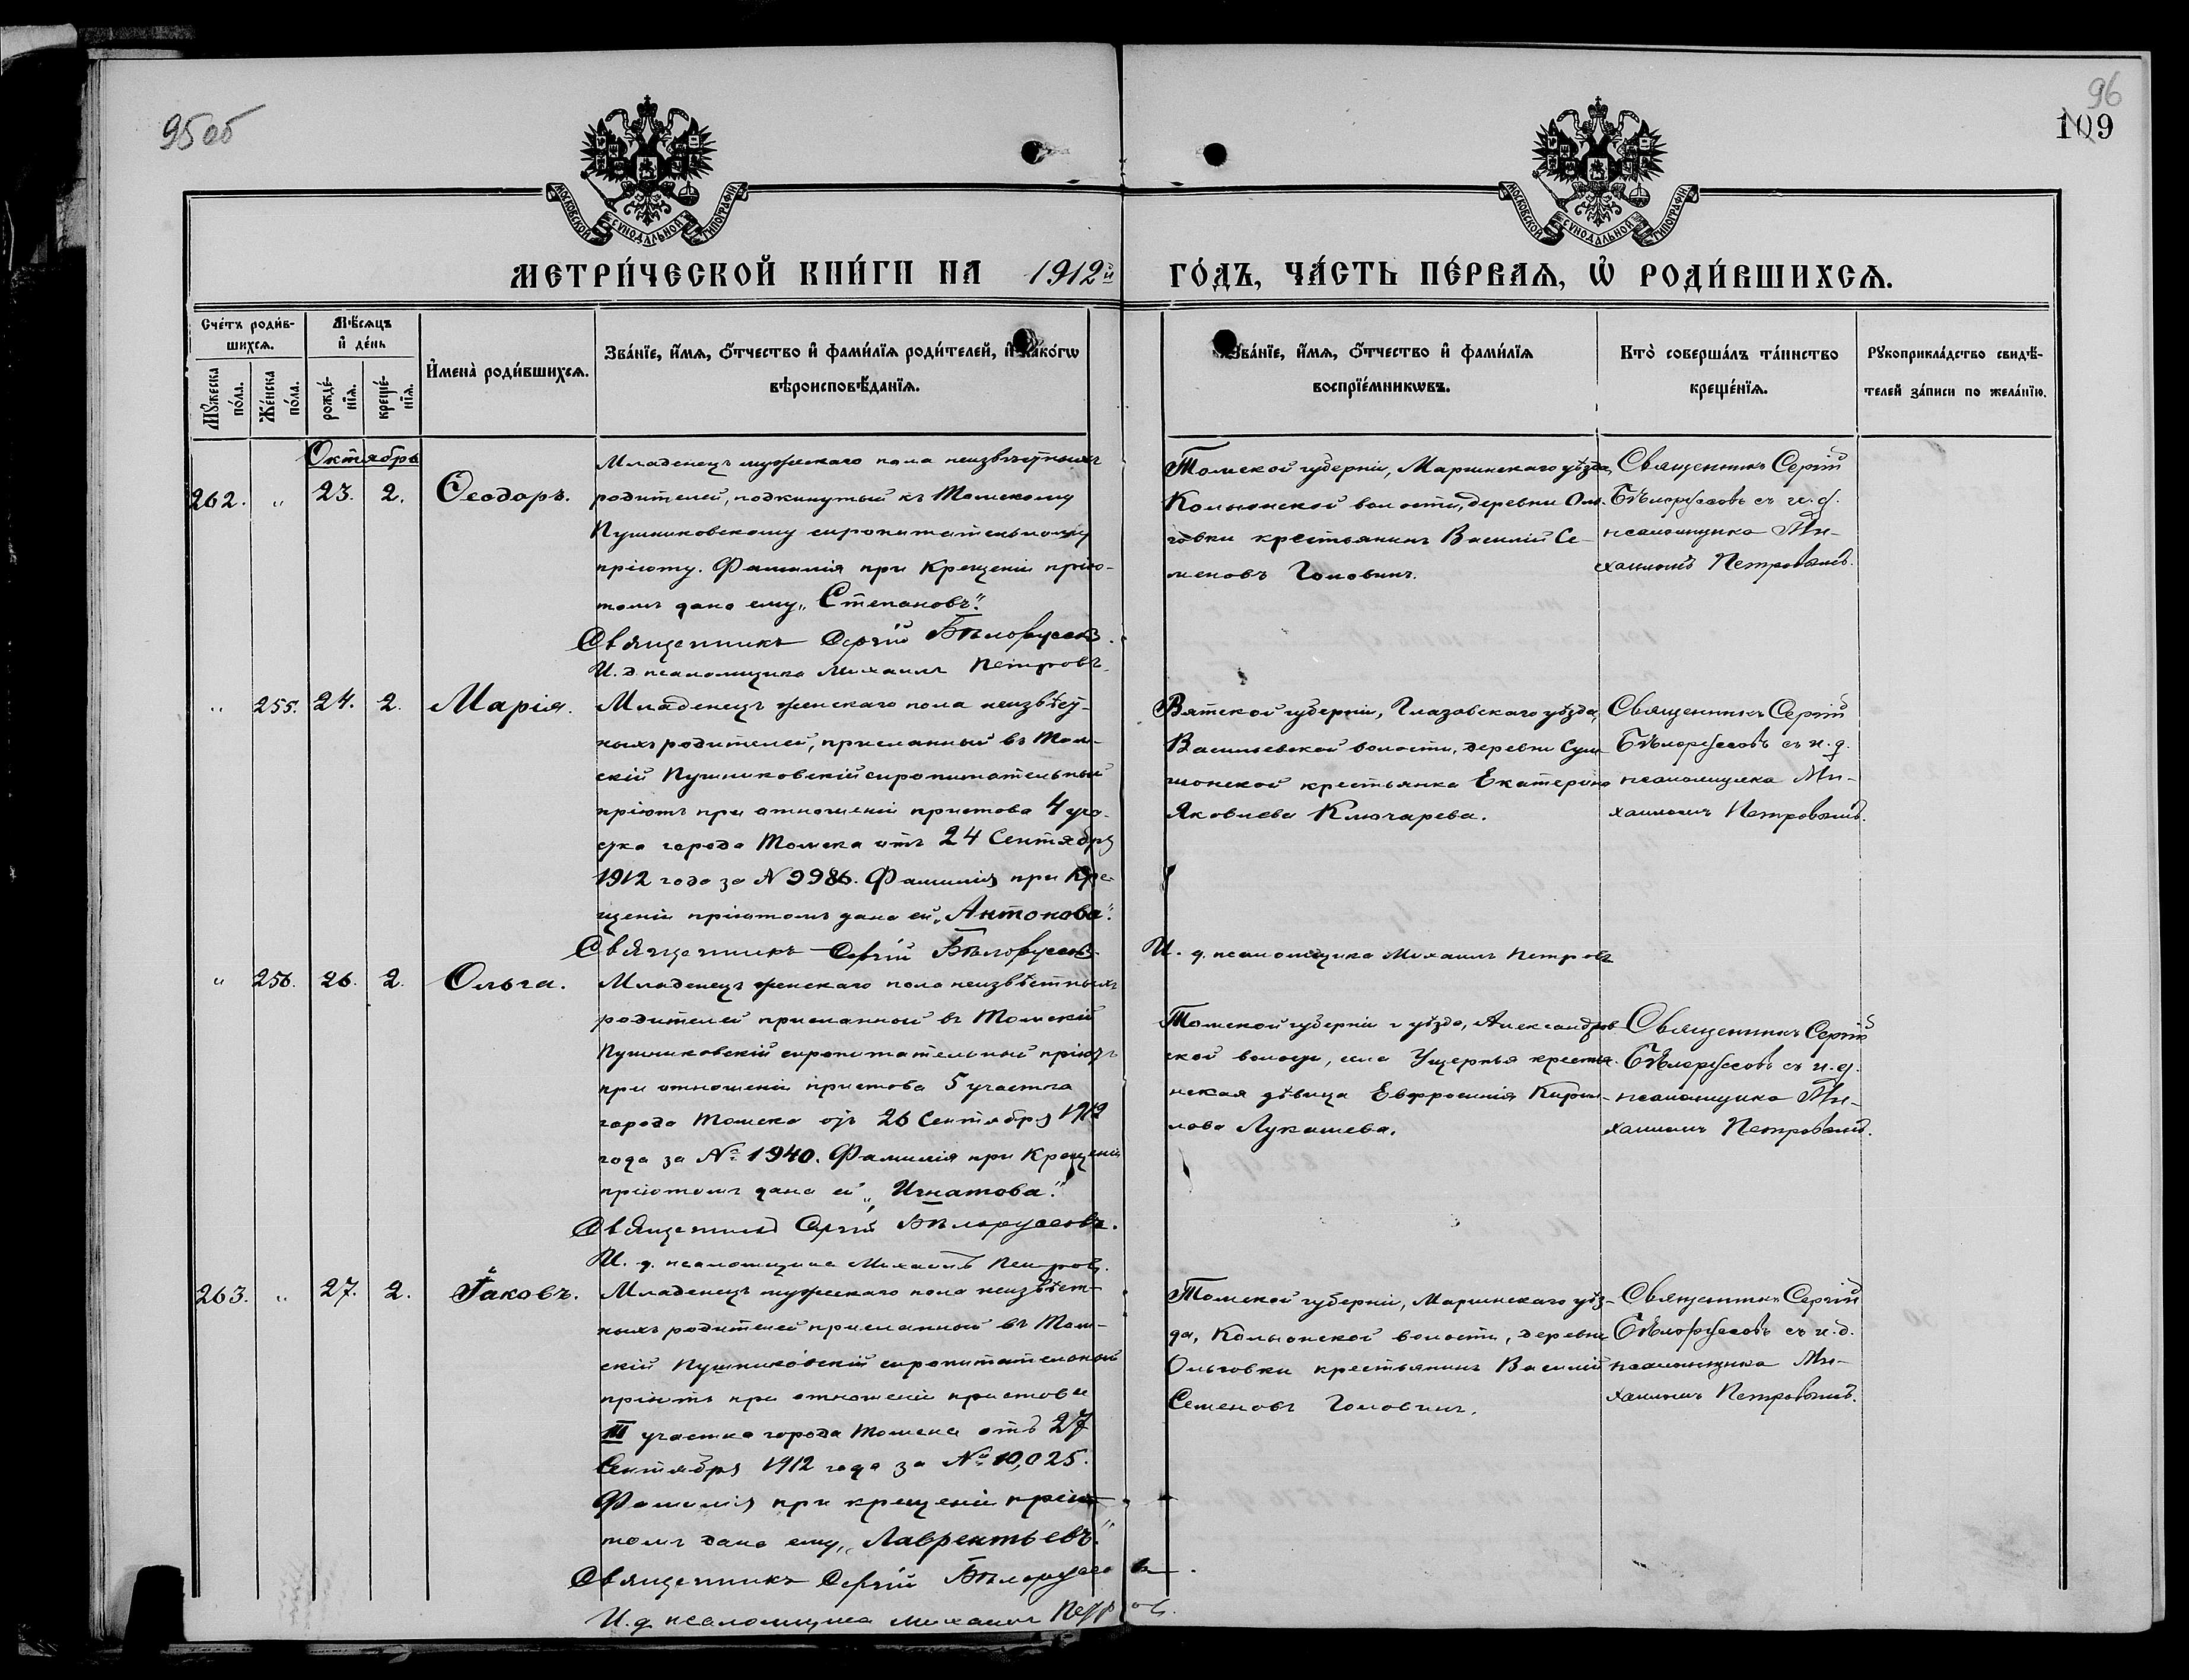 95 об
96
109
МОСКОВСКОЙ СѴНОДАЛЬНОЙ ТИПОГРАФІИ
МОСКОВСКОЙ СѴНОДАЛЬНОЙ ТИПОГРАФІИ
МЕТРИ́ЧЕСКОЙ КНИ́ГИ НА 1912й ГО́ДЪ, ЧА́СТЬ ПЕ́РВАѦ, Ѡ РОДИ́ВШИХСѦ.
Сче́тъ роди́в-
шихсѧ.
Мꙋ́жеска по́ла.
Же́нска по́ла.
Мѣ́сѧцъ и҆ де́нь
рожде́-
нїѧ.
креще́-
нїѧ.
И҆мена̀ роди́вшихсѧ.
Зва́нїе, и҆́мѧ, ѻ҆́тчество и҆ фами́лїѧ роди́телей, и҆ како́гѡ
вѣроисповѣ́данїѧ.
Зва́нїе, и҆́мѧ, ѻ҆́тчество и҆ фами́лїѧ
воспрїе́мникѡвъ.
Кто̀ соверша́лъ та́инство
креще́нїѧ.
Рꙋкоприкла́дство свидѣ́-
телей за́писи по жела́нїю.
Октябрь
262. „ 23. 2. Ѳеодоръ.
Младенецъ мужескаго пола неизвѣстныхъ
родителей, подкинутый къ Томскому
Пушниковскому сиропитательному
пріюту. Фамилія при Крещеніи прію-
томъ дана ему „Степановъ“.
Священникъ Сергій Бѣлоруссовъ.
И. д. псаломщика Михаилъ Петровъ.
Томской губерніи, Маріинскаго уѣзда,
Колыонской волости, деревни Оль-
говки крестьянинъ Василій Се-
меновъ Головинъ.
Священникъ Сергій
Бѣлоруссовъ съ и. д.
псаломщика Ми-
хаиломъ Петровымъ.
„ 255. 24. 2. Марія.
Младенецъ женскаго пола неизвѣст-
ныхъ родителей, присланный въ Том-
скій Пушниковскій сиропитательный
пріютъ при отношеніи пристава 4 уча-
стка города Томска отъ 24 Сентября
1912 года за N 9986. Фамилія при Кре-
щеніи пріютомъ дана ей „Антонова“.
Священникъ Сергій Бѣлоруссовъ.
И. д. псаломщика Михаилъ Петровъ
Вятской губерніи, Глазовскаго уѣзда,
Васильевской волости, деревни
крестьянка Екатерина
Яковлева Ключарева.
Священникъ Сергій
Бѣлоруссовъ съ и. д.
псаломщика Ми-
хаиломъ Петровымъ.
„ 256. 26. 2. Ольга.
Младенецъ женскаго пола неизвѣстныхъ
родителей присланный въ Томскій
Пушниковскій сиропитательный пріютъ
при отношеніи пристава 5 участка
города Томска отъ 26 Сентября 1912
года за № 1940. Фамилія при Крещеніи
пріютомъ дана ей „Игнатова“.
Священникъ Сергій Бѣлоруссовъ.
И. д. псаломщика Михаилъ Петровъ.
Томской губерніи и уѣзда, Александров-
ской волости, села Ущерпья крестья-
нская дѣвица Евфросинія Кирил-
лова Лукашева.
Священникъ Сергій
Бѣлоруссовъ съ и. д.
псаломщика Ми-
хаиломъ Петровымъ.
263. „ 27. 2. Іаковъ.
Младенецъ мужескаго пола неизвѣст-
ныхъ родителей присланный въ Том-
скій Пушниковскій сиропитательный
пріютъ при отношеніи пристава
III участка города Томска отъ 27
Сентября 1912 года за № 10,025.
Фамилія при крещеніи прію-
томъ дана ему „Лаврентьевъ“.
Священникъ Сергій Бѣлоруссовъ.
И. д. псаломщика Михаилъ Петровъ.
Томской губерніи, Маріинскаго уѣз-
да, Колыонской волости, деревни
Ольговки крестьянинъ Василій
Семеновъ Головинъ.
Священникъ Сергій
Бѣлоруссовъ съ и. д.
псаломщика Ми-
хаиломъ Петровымъ.